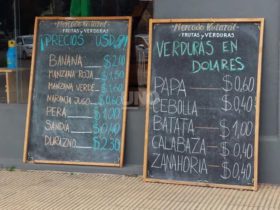 Mercado Natural
FRUTAS y VERDURAS
PRECIOS USD
BANANA $2,00
MANZANA ROJA $1,50
MANZANA VERDE $1,60
NARANJA JUGO $0,60
PERA $1,00
SANDIA $0,40
DURAZNO $2,30
Mercado Natural
FRUTAS y VERDURAS
VERDURAS EN
DOLARES
PAPA $0,60
CEBOLLA $0,40
BATATA $1,00
CALABAZA $0,40
ZANAHORIA $0,40